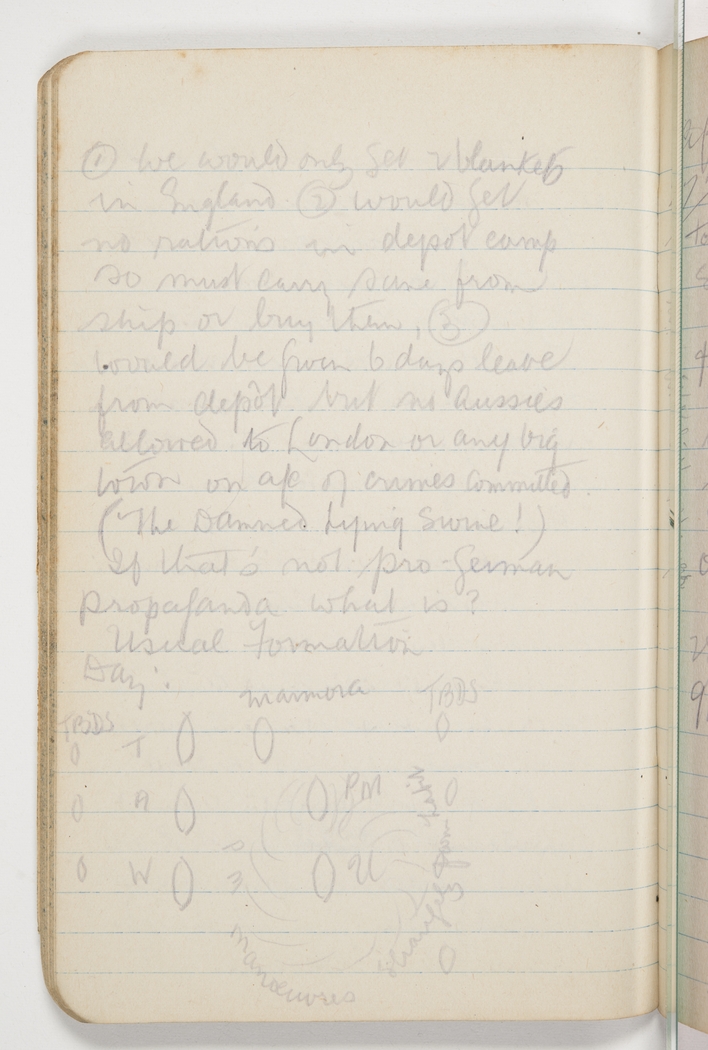 ① We would only get 2 blankets
in England ② would get
no rations in depot camp
so must carry same from
ship or buy them, ③
would be given 6 days leave
from depôt but no Aussies
allowed to London or any big
town on a/c of crimes committed.
(The Damned Lying Swine!)
If that's not pro-German
propaganda what is?
Usual Formation
Day:
Mamora TBDS
TBDS T
A PM
W U
manoeuvres